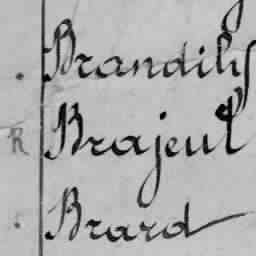 . Brandily
R Brajeul
. Brard